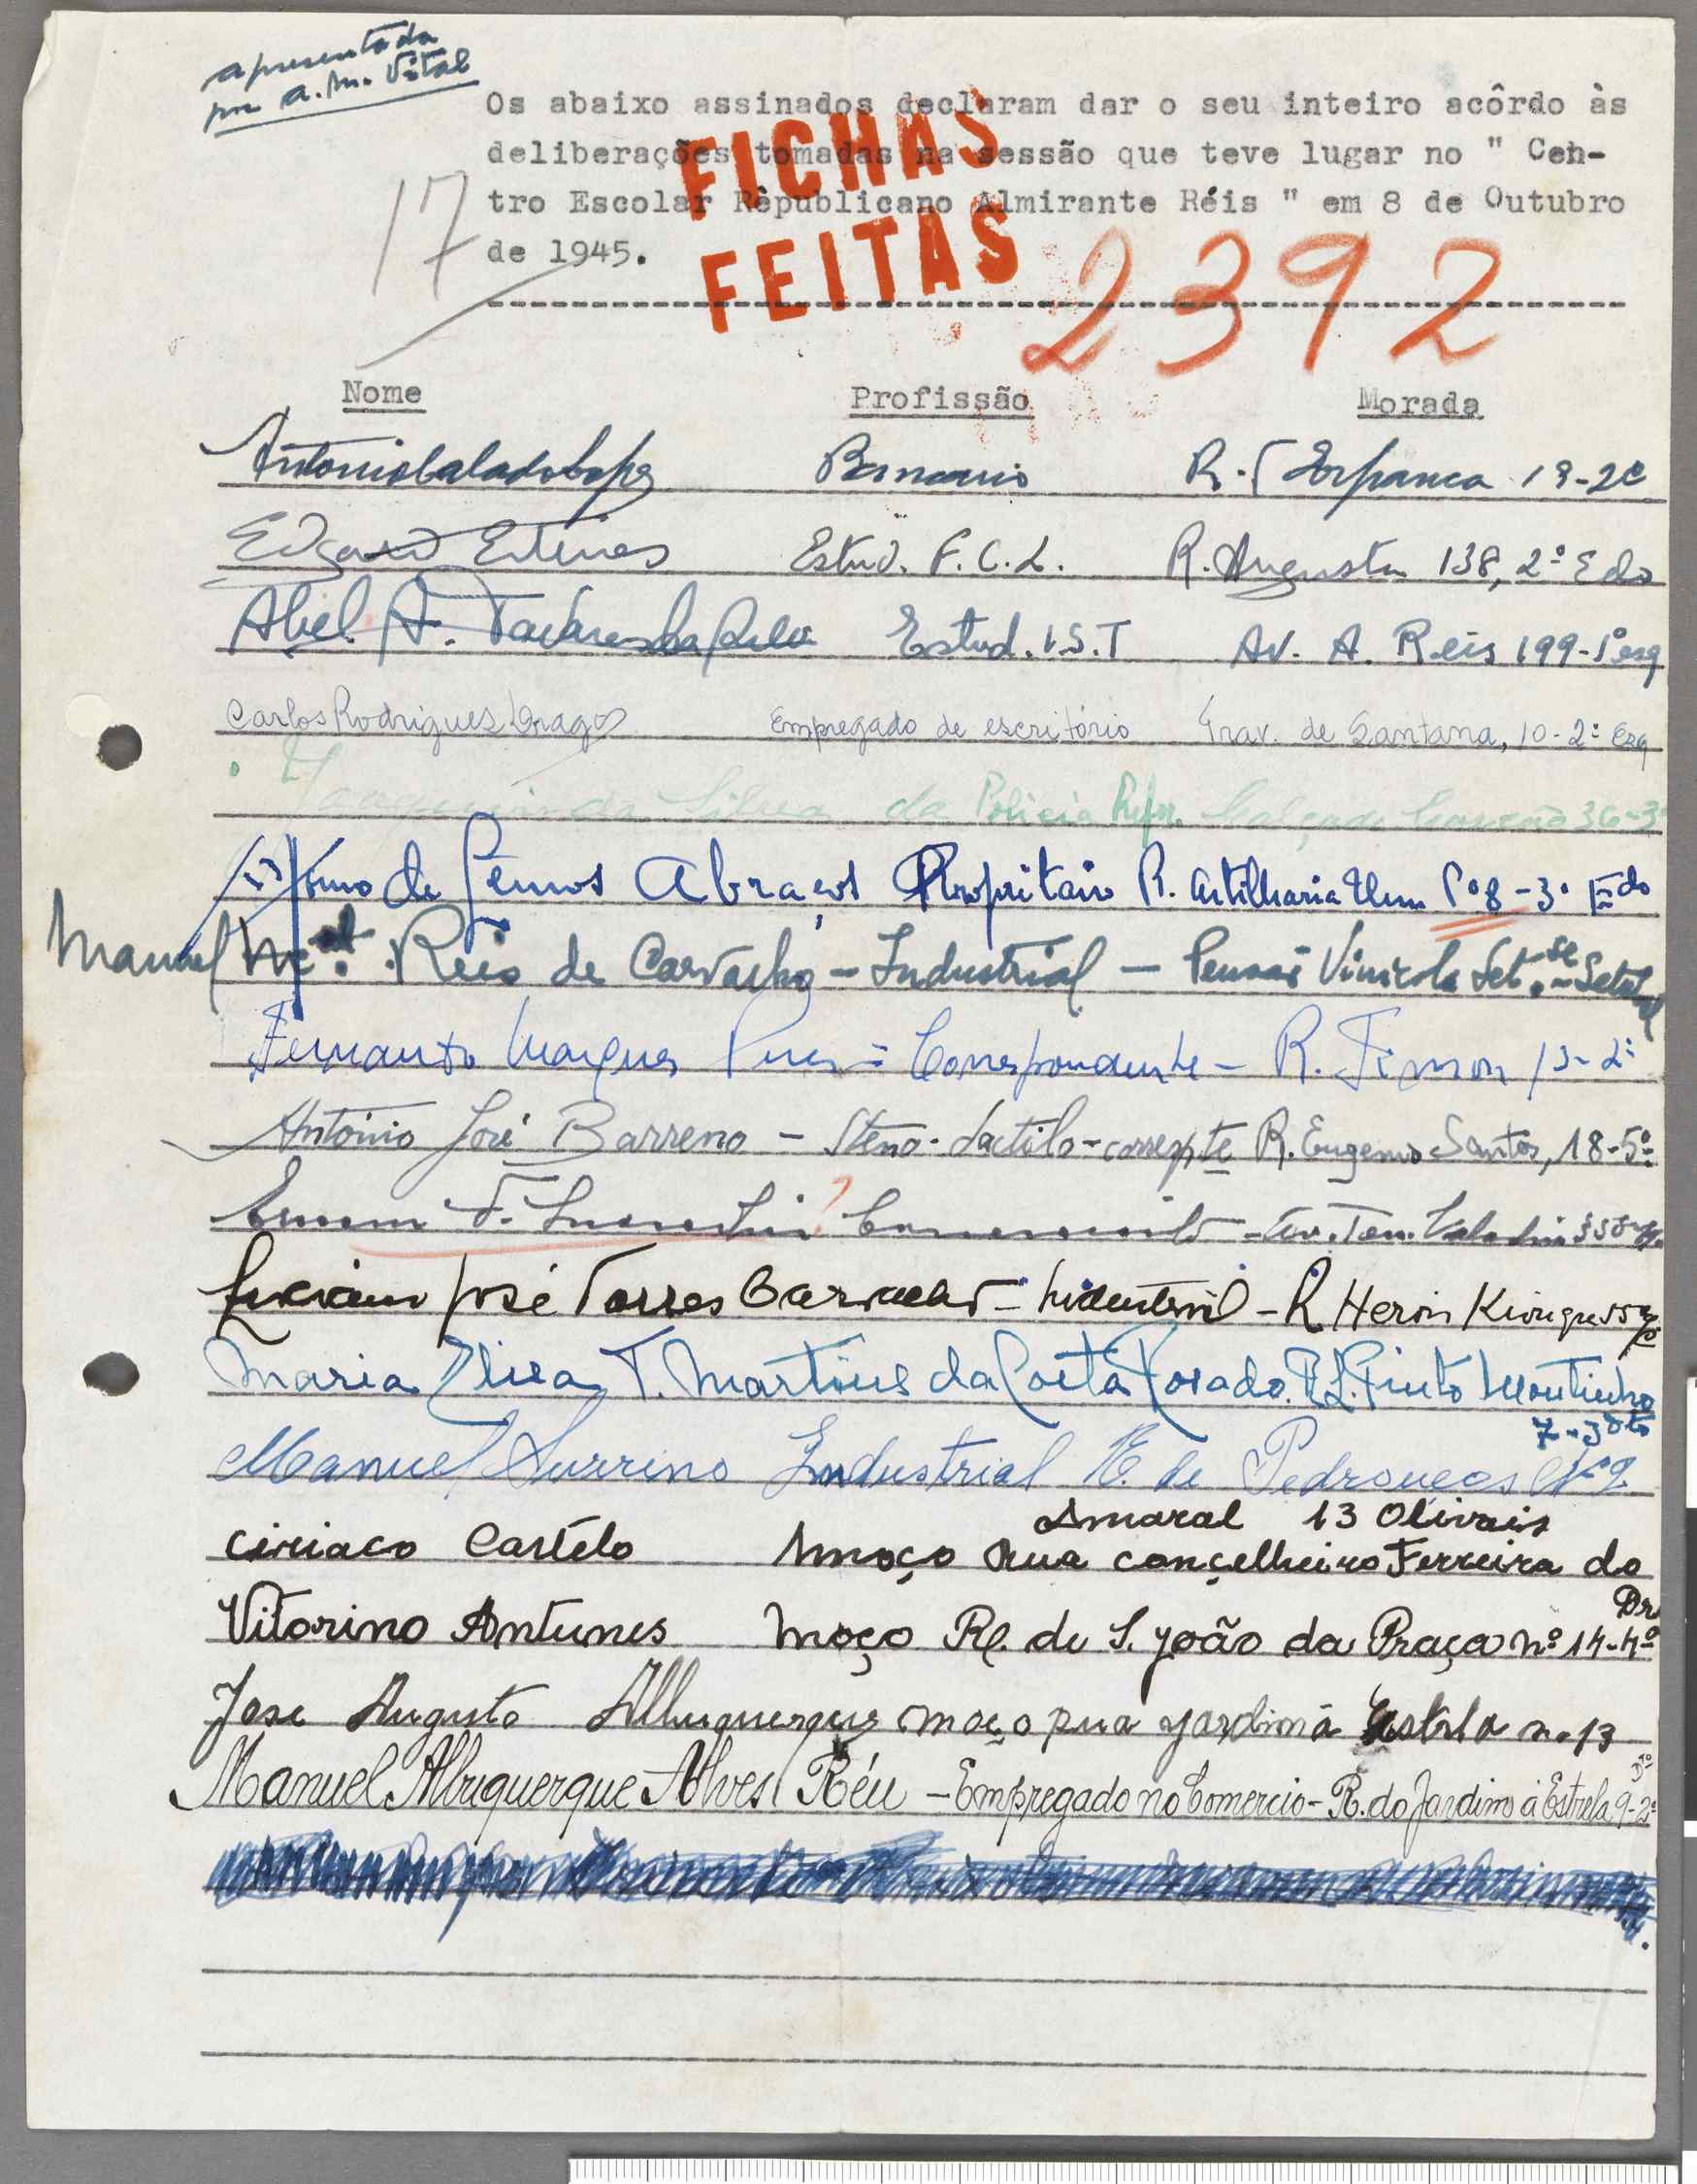 apresentada
por A. M. Vital
Os abaixo assinados declaram dar o seu inteiro acôrdo às
deliberações tomadas na sessão que teve lugar no " Cen-
tro Escolar Rèpublicano Almirante Réis " em 8 de Outubro
de 1945.
17
FICHAS
FEITAS
2392
Nome Profissão Morada
Antonio Calado Lopes Bancario R. 19-2º
Edgard Esteves Estud. F.C.L. R. Augusta 138, 2º Edo
Abel A. Tavares da Silva Estud. I.S.T Av. A. Reis 199-1º esq
Carlos Rodrigues Drago Empregado de escritório Trav. de Santana, 10-2º Esq
Joaquim da Silva da Policia Refor. Calçada 36-3º
de Lemos Abraços Propritario R. Artilharia Um 8-3º Edo
Manuel Mel. Reis de Carvalho - Industrial - Pensão Vinicola
Fernando Marques - Correspondente - R. 13-2º
António José Barreno - Steno-dactilo-correspte R. Eugenio Santos, 18-5º
Av. Ten. Valadim
Luciano José Torres Carvalho - Industrial - R Herois Kionga
Maria Elisa T. Martins da Costa Rosado. R L. Pinto Moutinho
7-3º dto
Manuel Surrino Industrial R. de Pedrouços
Amaral 13 Olivais
Ciriaco Castélo Mmoço Rua conçelheiro Ferreira do
Vitorino Antunes Moço R. de S. João da Praça nº 14-4º Dr
Jose Augusto Albuquerque moço rua jardim á Estrela n. 13
Manuel Albuquerque Alves Réu - Empregado no Comercio - R. do Jardim á Estrela, 9-2º